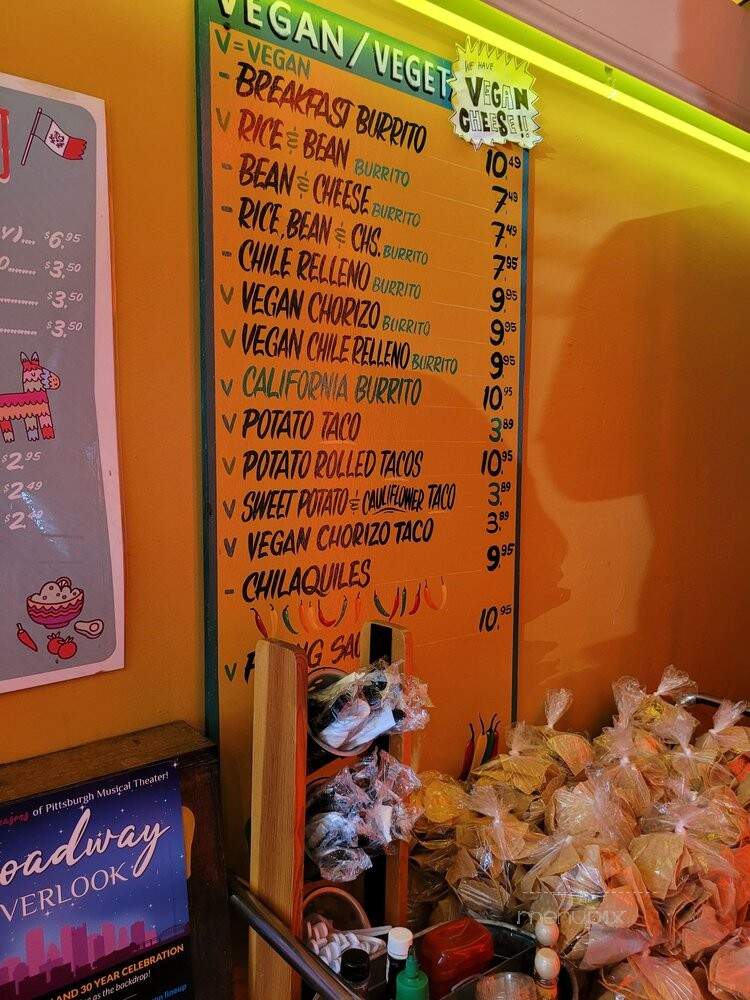 VEGAN/VEGET
V=VEGAN
WE HAVE
VEGAN
CHEESE!!
- BREAKFAST BURRITO 10.49
V RICE & BEAN BURRITO 7.49
- BEAN & CHEESE BURRITO 7.49
- RICE, BEAN & CHS. BURRITO 7.95
- CHILE RELLENO BURRITO 9.95
V VEGAN CHORIZO BURRITO 9.95
V VEGAN CHILE RELLENO BURRITO 9.95
V CALIFORNIA BURRITO 10.95
V POTATO TACO 3.89
V POTATO ROLLED TACOS 10.95
V SWEET POTATO & CAULIFLOWER TACO 3.89
V VEGAN CHORIZO TACO 3.89
- CHILAQUILES 9.95
10.95
V)... $6.95
$3.50
$3.50
$3.50
$2.95
$2.49
of Pittsburgh Musical Theater!
oadway
VERLOOK
AND 30 YEAR CELEBRATION
as the backdrop!
lineup
menupix